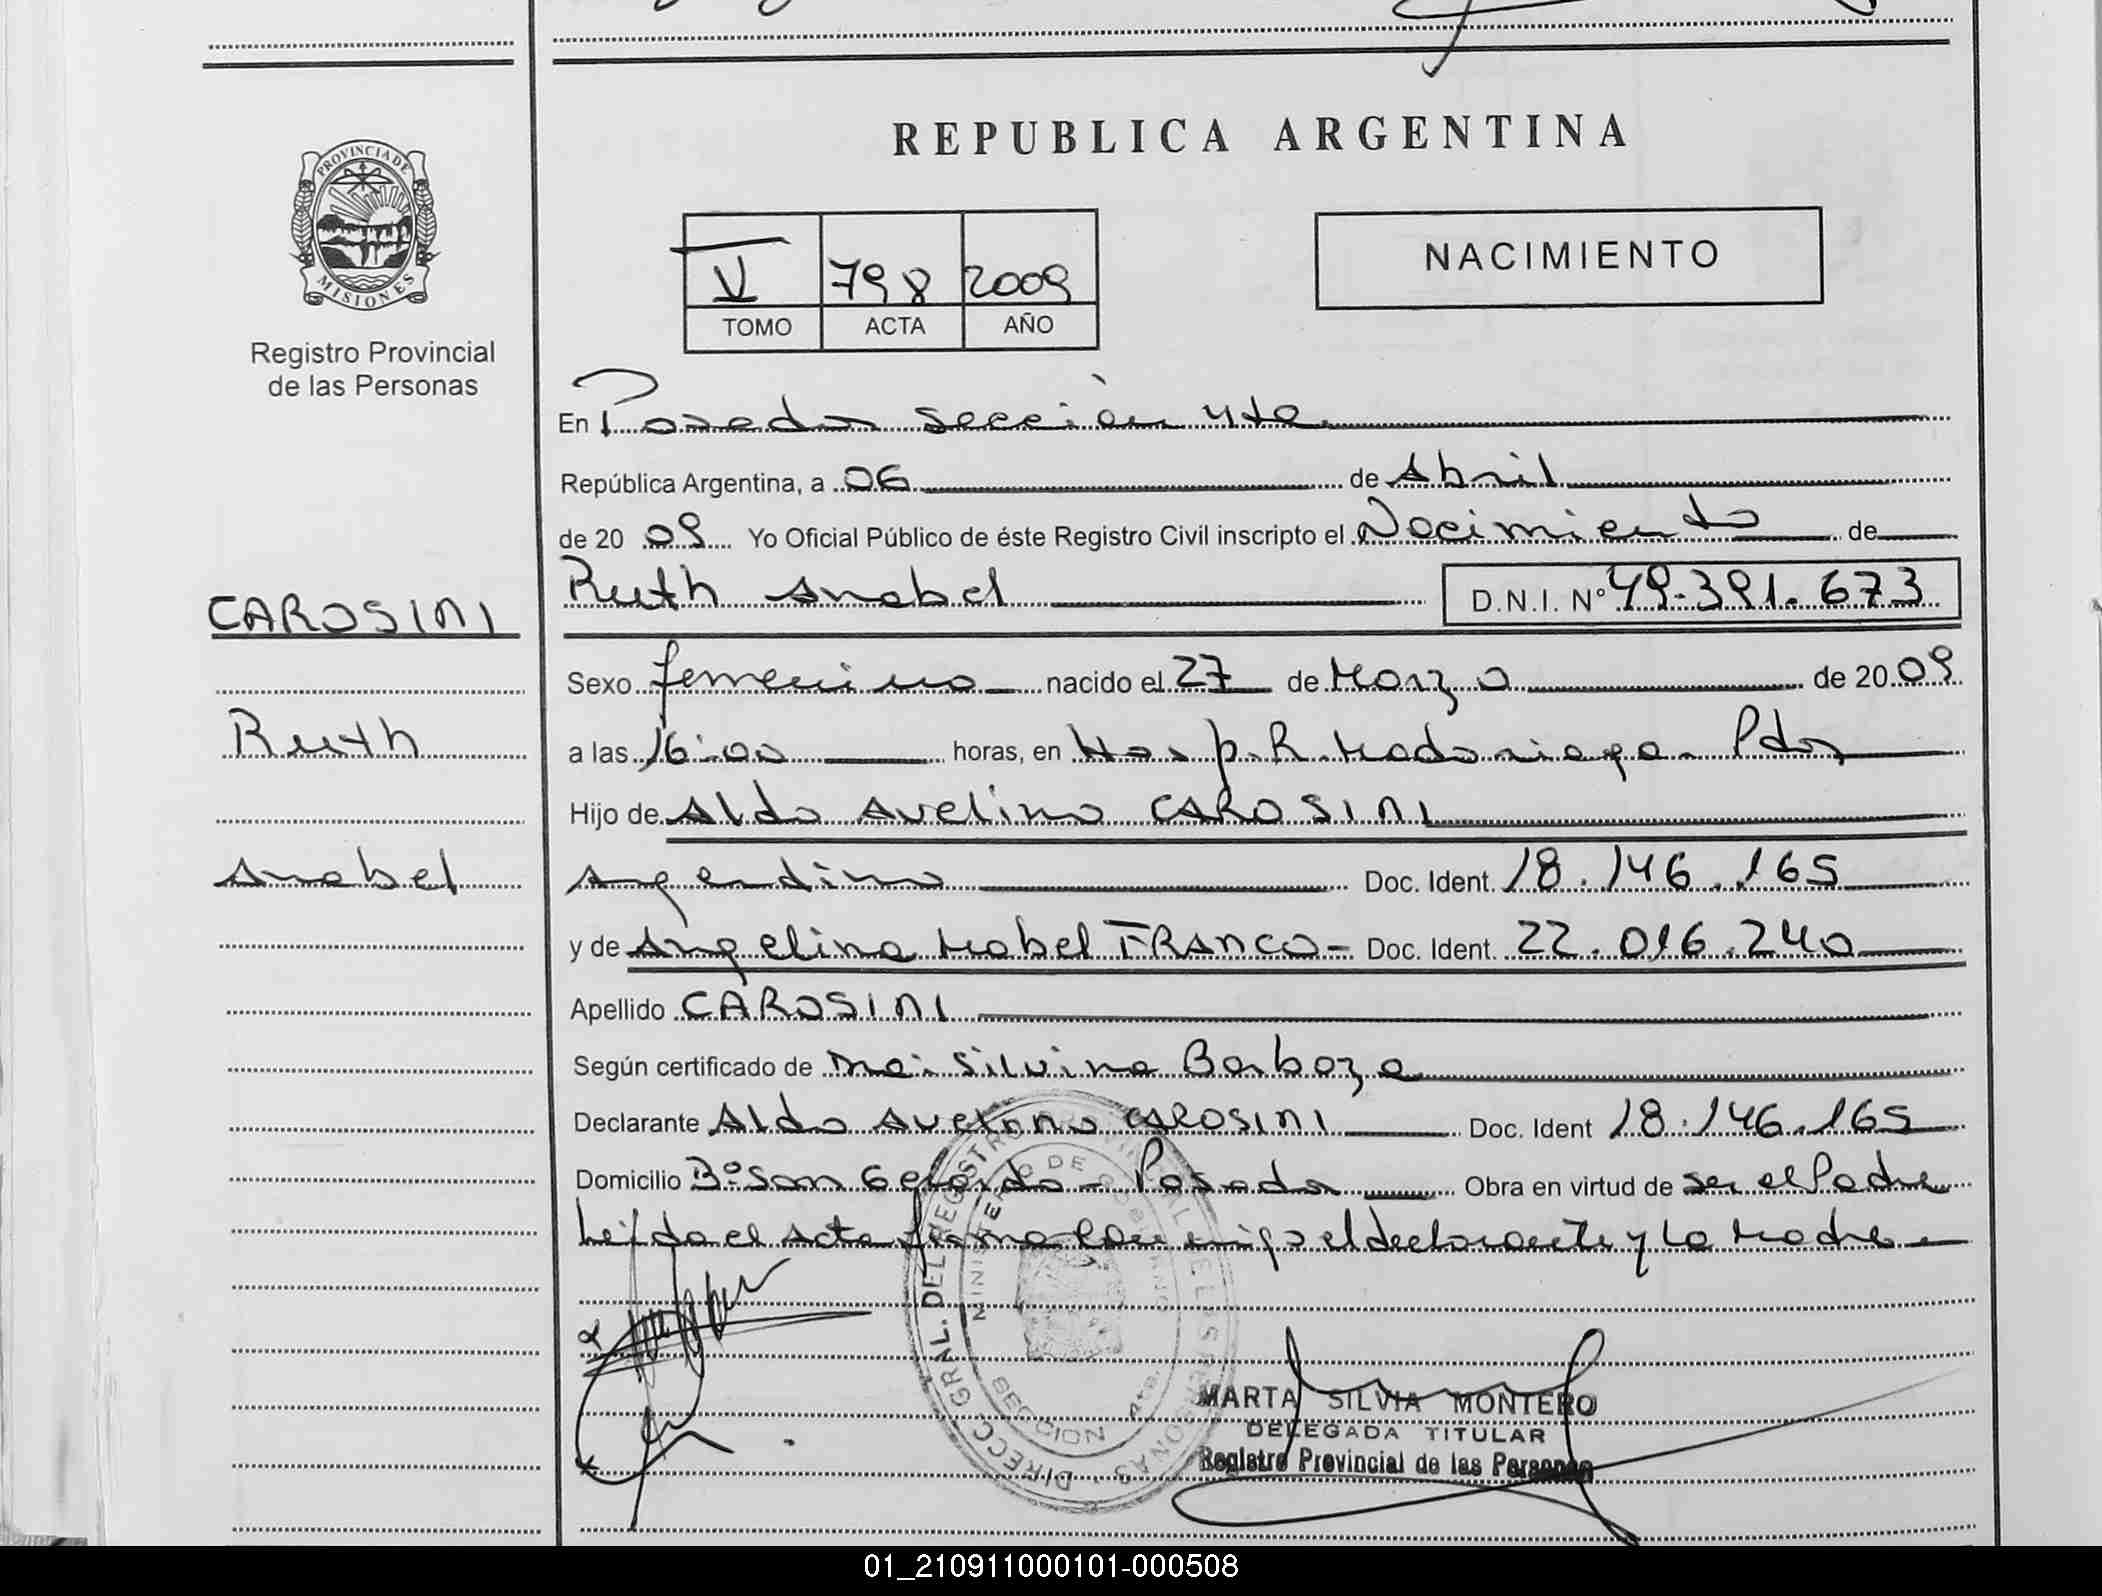 REPUBLICA ARGENTINA
PROVINCIA DE
MISIONES
Registro Provincial
de las Personas
V 798 2009
TOMO ACTA AÑO
NACIMIENTO
En Posadas Sección 4ta
República Argentina, a 06 de Abril
de 20 09 Yo Oficial Público de éste Registro Civil inscripto el Nacimiento de
CAROSINI
Ruth
Anabel
Ruth Anabel D.N.I. N° 49.391.673
Sexo femenino nacido el 27 de Marzo de 20 09
a las 16:00 horas, en Hosp. R. Madariaga - Pdas
Hijo de Aldo Avelino CAROSINI
Argentino Doc. Ident. 18.146.165
y de Angelina Mabel FRANCO - Doc. Ident. 22.016.240
Apellido CAROSINI
Según certificado de Silvina Barboza
Declarante Aldo Avelino CAROSINI Doc. Ident 18.146.165
Domicilio B° San Gerardo - Posadas Obra en virtud de ser el Padre
Leída el Acta firma conmigo el declarante y La Madre -
DIRECC. GRAL. DEL REGISTRO PROVINCIAL DE LAS PERSONAS
MINISTERIO DE GOBIERNO
SECCION 4ta.
MARTA SILVIA MONTERO
DELEGADA TITULAR
Registro Provincial de las Personas
01_210911000101-000508